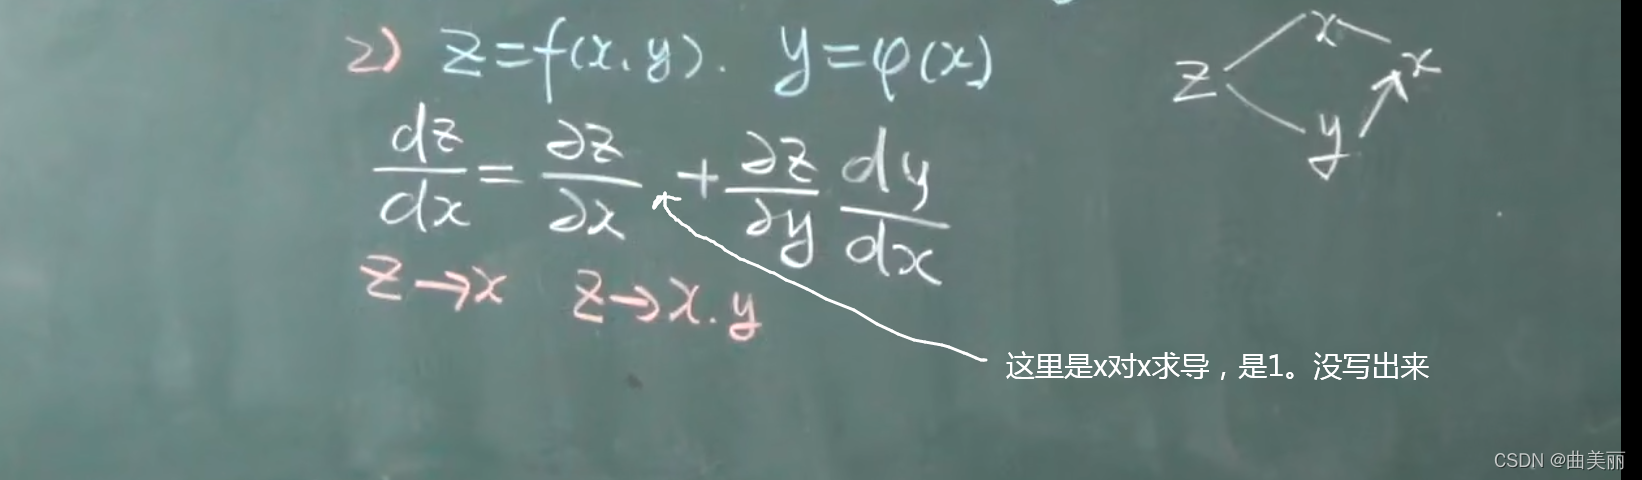 2) z=f(x,y). y=φ(x)
x
z x
y
dz/dx = ∂z/∂x + ∂z/∂y dy/dx
z→x z→x.y
这里是x对x求导，是1。没写出来
CSDN @曲美丽